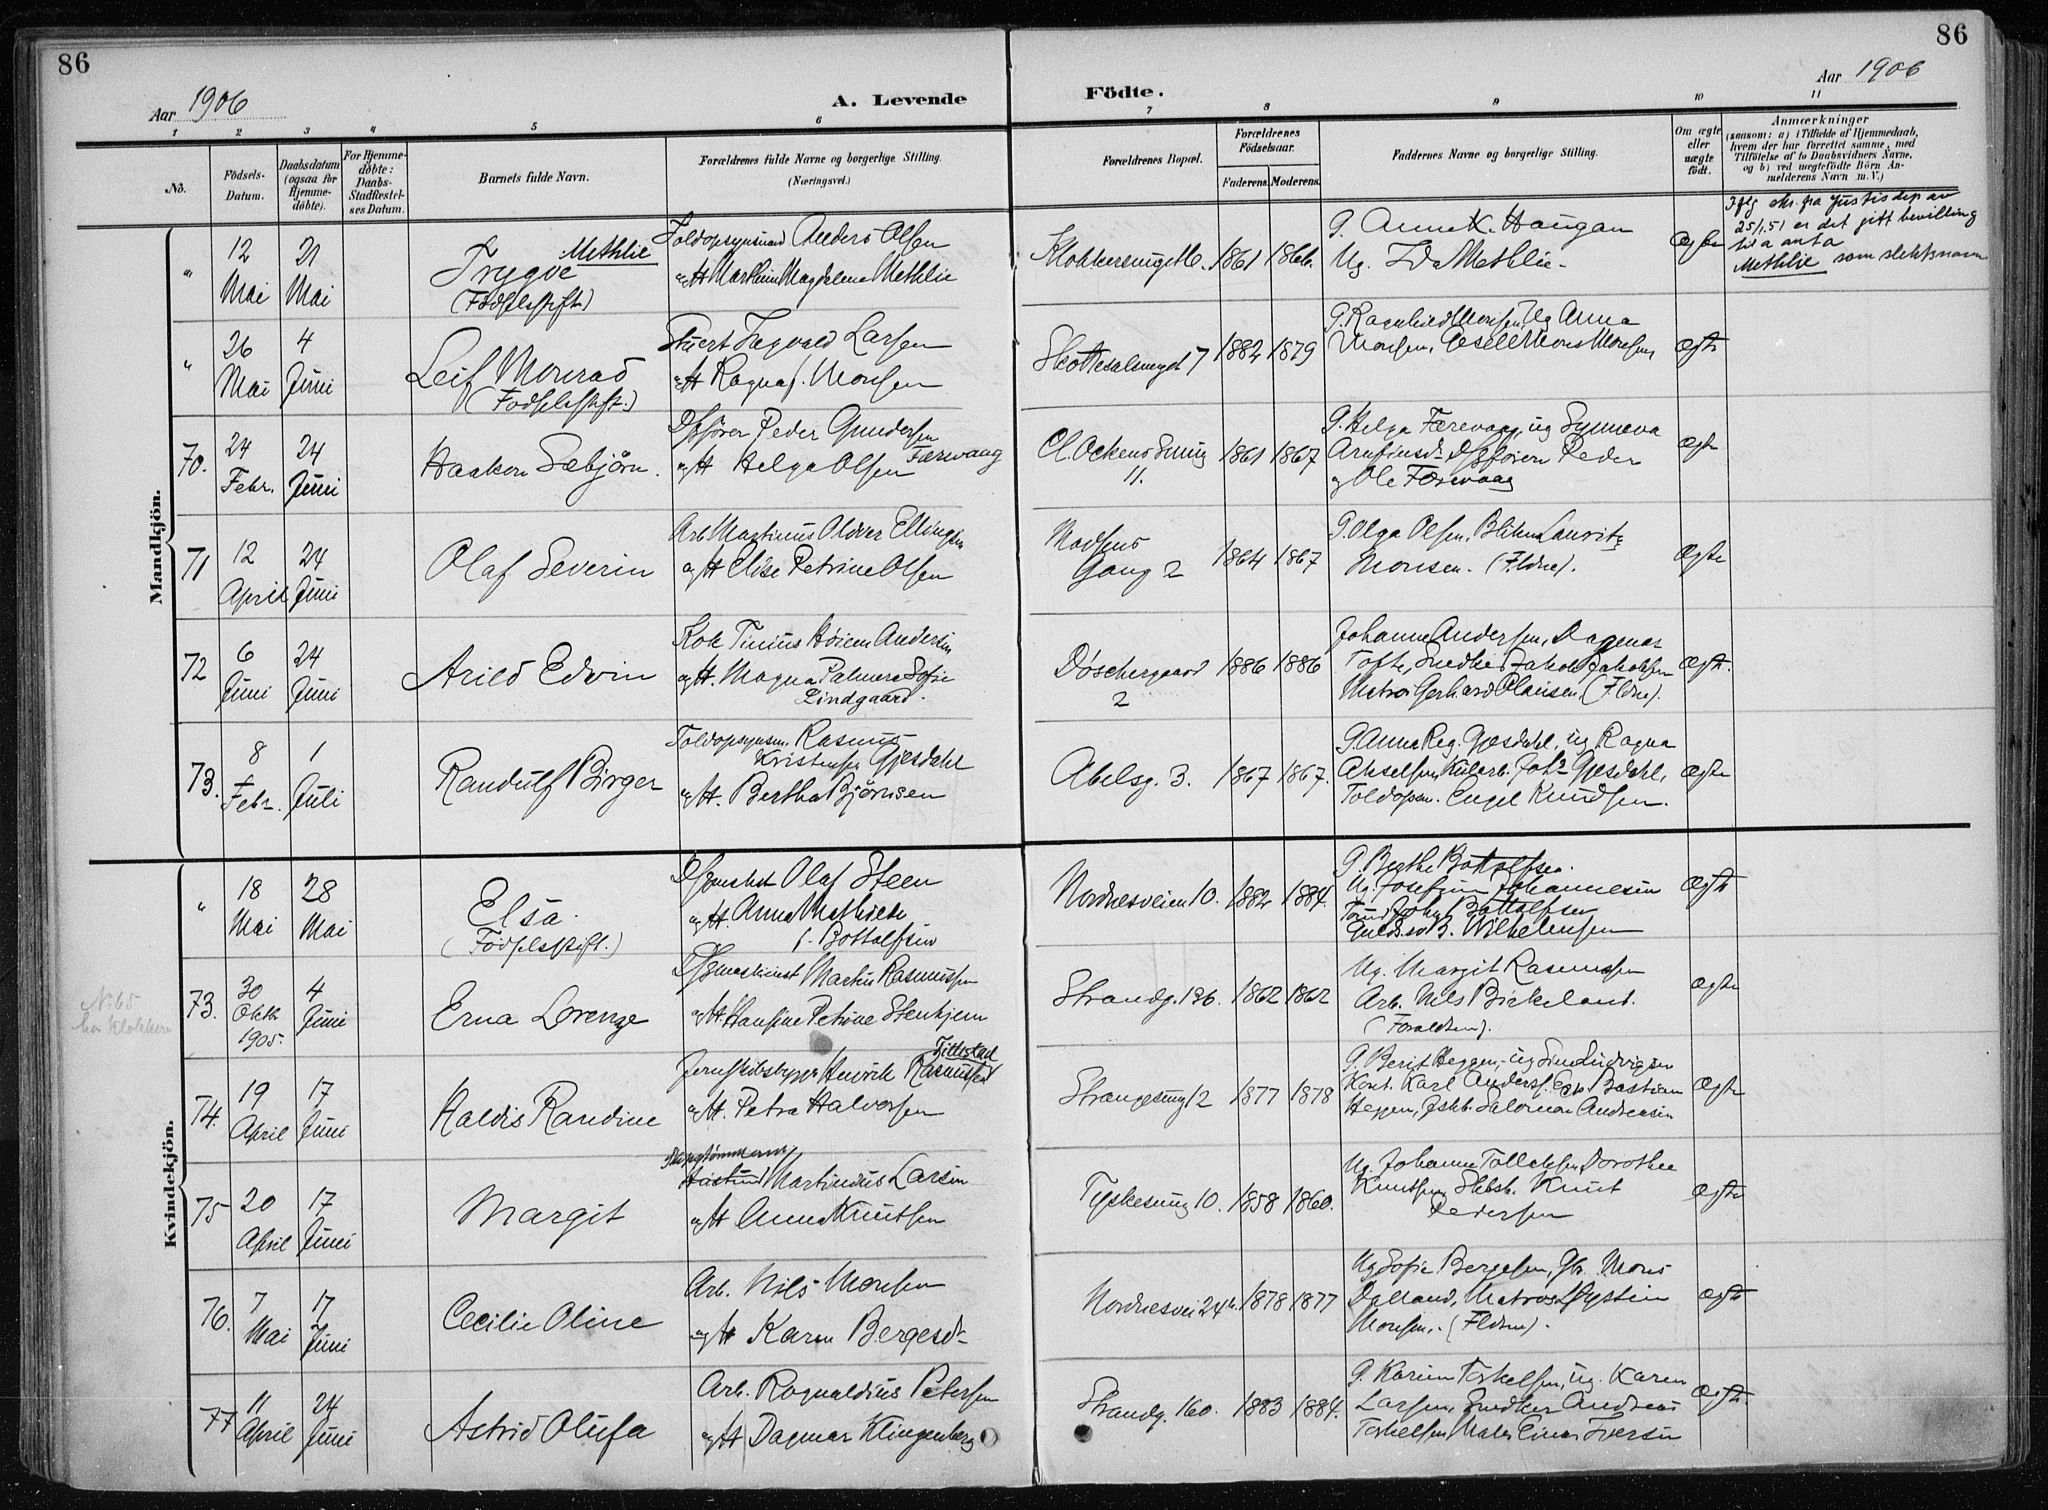 86
86
Aar 1906
A. Levende
Födte.
Aar 1906
1 2 3 4 5 6 7 8 9 10 11
No.
Födsels-Datum.
Daabsdatum (ogsaa for Hjemmedöbte).
For Hjemmedöbte: Daabs-Stadfæstelses Datum.
Barnets fulde Navn.
Forældrenes fulde Navne og borgerlige Stilling.
(Næringsvei.)
Forældrenes Bopæl.
Forældrenes Födselsaar.
Faderens. Moderens.
Faddernes Navne og borgerlige Stilling.
Om ægte eller uægte födt.
Anmærkninger
(saasom: a) i Tilfælde af Hjemmedaab, hvem der har forrettet samme, med Tilföielse af to Daabsvidners Navne, og b) ved uægtefödte Börn Anmelderens Navn m. V.)
Mandkjön.
" 12 Mai
21 Mai
Trygve Methlie
(Fødselsstift.)
Toldopsynsmand Anders Olsen
og H. Marthine Magdalene Methlie
Klokkersmuget 6. 1861 1866
G. Anne K. Haugan
Ug. Ida Methlie
Ægte
Iflg skr. fra Justisdep av
25/1.51 er det gitt bevilling
til å anta
Methlie som slektsnavn
" 26 Mai
4 Juni
Leif Monrad
(Fødselsstift.)
Stuert Tagvald Larsen
og H Ragna f. Monsen
Skottesalsmuget 7 1882 1879
G. Ragnhild Monsen, Ug Anna
Monsen, Mons Monsen,
Ægte
70. 24 Febr.
24 Juni
Haakon Sæbjørn.
Peder Gundersen Færevaag
og H Helga Olsen
Cl. Ockens Smug
11.
1861 1867
G. Helga Færevaag, ug Synneva
Arnfinsd. Peder
og Ole Færevaag
Ægte
71 12 April
24 Juni
Olaf Severin
Arb. Martinus Oliver Ellingsen
og H Elise Petrine Olsen
Madsens
Gang 2
1864 1867
G. Olga Olsen, Lauritz
Monsen. (Fldre).
Ægte
72 6 Juni
24 Juni
Arild Edvin
Kok Tinius Høiem Andersen
og H. Magna Palmera Sofie
Lindgaard.
Døschergaard
2
1886 1886
Johanne Andersen, Dagmar
Tofte, Snedker Jakob Jakobsen
Matros Gerhard Clausen, (Fldre).
Ægte.
73. 8 Febr.
1 Juli
Randulf Birger
Toldopsynsm. Rasmus
Kristensen Gjesdahl
og H. Bertha Bjørnsen
Abelsg. 3. 1867 1867.
G. Anna Reg. Gjesdahl, ug Ragna
Akselsen, Kularb. Johs Gjesdahl,
Toldopsm. Engel Knudsen.
Ægte
Kvindekjön.
" 18 Mai
28 Mai
Elsa.
(Fødselsstift.)
Olaf Steen
og H. Anna Mathilde
f. Bottolfsen
Nordnesveien 10. 1882 1884.
G. Berthe Bottolfsen.
Ug. Josefine Johannesen
John Bottolfsen
B. Wilhelmsen
Ægte
N: 65
hos Klokkeren
73. 30 Oktb 1905.
4 Juni
Erna Lorenze
Martin Rasmussen
og H. Hansine Petrine Stenhjem
Strandg. 196. 1862 1862
Ug. Margit Rasmussen
Arb. Nils Birkeland.
(Forældren).
Ægte
74. 19 April
17 Juni
Haldis Randine
Jernskibsbygger Henrik Rasmussen Tillestad
og H. Petra Halvorsen
Strangesmug 12 1877 1878
G. Berit Heggen, ug Sina Ludvigsen
Kont. Karl Anders. Bastian
Heggen, Salomon Andreasen
Ægte
75 20 April
17 Juni
Margit
Skipstømmerm. Martinus Larsen
og H Anna Knutsen
Tyskesmug 10. 1858 1860.
Ug. Johanne Tollaksen Dorothea
Knutsen Knut
Pedersen
Ægte
76. 7 Mai
17 Juni
Cecilie Oline
Arb. Nils Monsen
og H Karen Bergesd.
Nordnesvei 24 b. 1878 1877
Ug Sofie Bergesen, Gbr. Mons
Dalland, Matros Øystein
Monsen. (Fldren).
Ægte
77 11 April
24 Juni
Astrid Olufa
Arb. Ragnaldius Petersen
og H Dagmar Klingenberg
Strandg. 160. 1883 1884.
G. Karen Torkelsen, ug. Karen
Larsen, Snedker Andreas
Torkelsen, Maler Einar Iversen
Ægte.